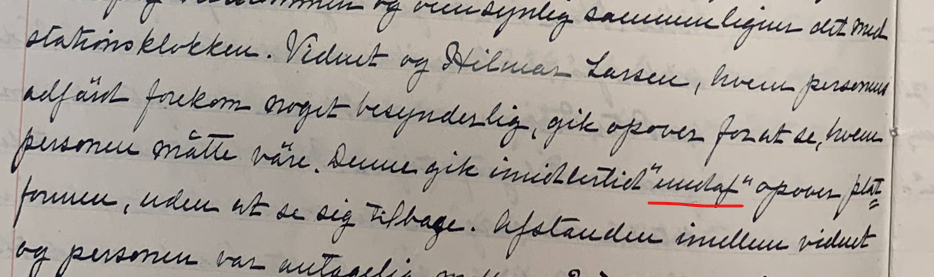 og øiensynlig sammenlignet det med
stationsklokken. Vidnet og Hilmar Larsen, hvem personens
adfärd forekom noget besynderlig, gik opover for at se, hvem
personen måtte väre. Denne gik imidlertid "undaf" opover plat=
formen, uden at se sig tilbage. Afstanden imellem vidnet
og personen var antagelig